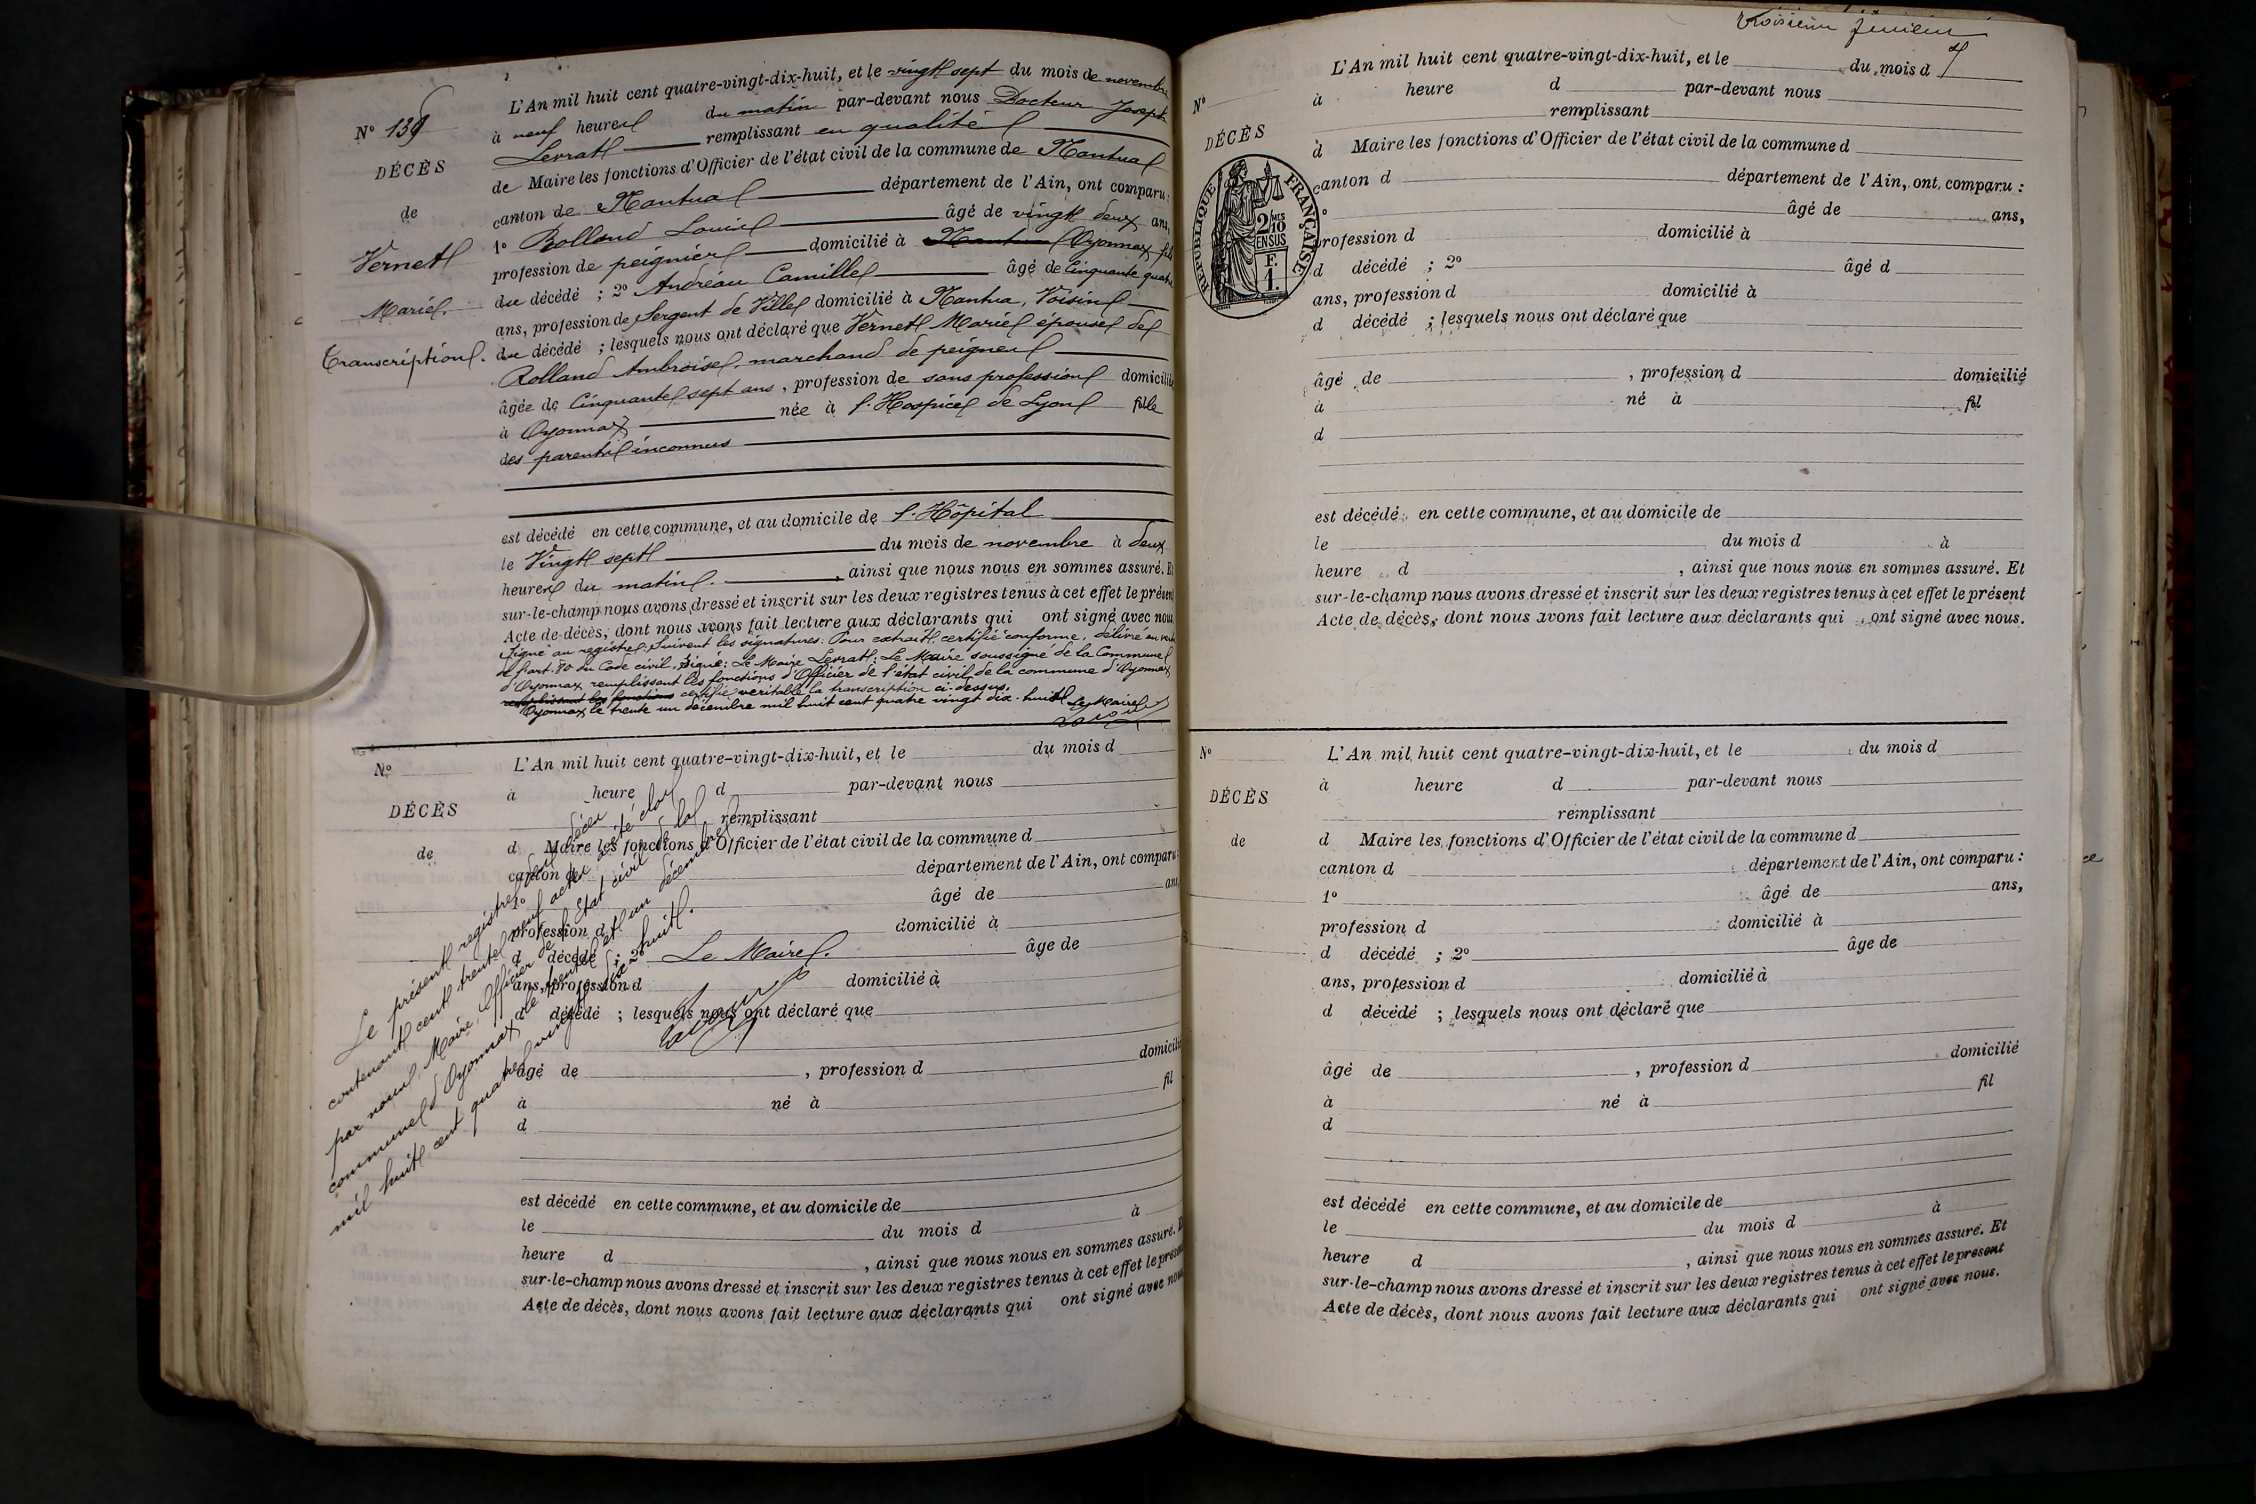 N° 139
DÉCÈS
de
Vernet
Marie.
Transcription.
L'An mil huit cent quatre-vingt-dix-huit, et le vingt sept du mois de novembre
à neuf heures du matin par-devant nous Docteur Joseph
Levrat remplissant en qualité
de Maire les fonctions d'Officier de l'état civil de la commune de Nantua
canton de Nantua département de l'Ain, ont comparu :
1° Rolland Louis âgé de vingt deux ans,
profession de peignier domicilié à Nantua Oyonnax fils
du décédé ; 2° Andréau Camille âgé de Cinquante quatre
ans, profession de Sergent de Ville domicilié à Nantua, Voisin
du décédé ; lesquels nous ont déclaré que Vernet Marie épouse de
Rolland Ambroise, marchand de peignes
âgée de Cinquante sept ans, profession de sans profession domicilié
à Oyonnax née à l'Hospice de Lyon fille
des parents inconnus
est décédé en cette commune, et au domicile de l'Hôpital
le Vingt sept du mois de novembre à deux
heures du matin. , ainsi que nous nous en sommes assuré. Et
sur-le-champ nous avons dressé et inscrit sur les deux registres tenus à cet effet le présent
Acte de décès, dont nous avons fait lecture aux déclarants qui ont signé avec nous
signé au registre. Suivent les signatures. Pour extrait certifié conforme, délivré en vertu
de l'art. 80 du Code civil, Signé: Le Maire Levrat: Le Maire soussigné de la Commune
d'Oyonnax remplissant les fonctions d'Officier de l'état civil de la commune d'Oyonnax
remplissant les fonctions certifie véritable la transcription ci-dessus.
Oyonnax le trente un décembre mil huit cent quatre vingt dix-huit Le Maire
N°
DÉCÈS
de
L'An mil huit cent quatre-vingt-dix-huit, et le du mois d
à heure d par-devant nous
remplissant
d Maire les fonctions d'Officier de l'état civil de la commune d
canton d département de l'Ain, ont comparu :
1° âgé de ans,
profession d domicilié à
d décédé ; 2° âge de
ans, profession d domicilié à
d décédé ; lesquels nous ont déclaré que
âgé de , profession d domicilié
à né à fil
d
est décédé en cette commune, et au domicile de
le du mois d à
heure d , ainsi que nous nous en sommes assuré. Et
sur-le-champ nous avons dressé et inscrit sur les deux registres tenus à cet effet le présent
Acte de décès, dont nous avons fait lecture aux déclarants qui ont signé avec nous
Le présent registre des décès
contenant cent trente neuf actes a été clos
par nous, Maire, Officier de l'état civil de la
commune d'Oyonnax le trente et un décembre
mil huit cent quatre vingt dix huit.
Le Maire.
troisième feuillet
N°
DÉCÈS
RÉPUBLIQUE FRANÇAISE
2/10
MES
EN SUS
F.
1.
L'An mil huit cent quatre-vingt-dix-huit, et le du mois d
à heure d par-devant nous
remplissant
d Maire les fonctions d'Officier de l'état civil de la commune d
canton d département de l'Ain, ont comparu :
° âgé de ans,
profession d domicilié à
d décédé ; 2° âgé d
ans, profession d domicilié à
d décédé ; lesquels nous ont déclaré que
âgé de , profession d domicilié
à né à fil
d
est décédé en cette commune, et au domicile de
le du mois d à
heure d , ainsi que nous nous en sommes assuré. Et
sur-le-champ nous avons dressé et inscrit sur les deux registres tenus à cet effet le présent
Acte de décès, dont nous avons fait lecture aux déclarants qui ont signé avec nous.
N°
DÉCÈS
de
L'An mil huit cent quatre-vingt-dix-huit, et le du mois d
à heure d par-devant nous
remplissant
d Maire les fonctions d'Officier de l'état civil de la commune d
canton d département de l'Ain, ont comparu :
1° âgé de ans,
profession d domicilié à
d décédé ; 2° âge de
ans, profession d domicilié à
d décédé ; lesquels nous ont déclaré que
âgé de , profession d domicilié
à né à fil
d
est décédé en cette commune, et au domicile de
le du mois d à
heure d , ainsi que nous nous en sommes assuré. Et
sur-le-champ nous avons dressé et inscrit sur les deux registres tenus à cet effet le présent
Acte de décès, dont nous avons fait lecture aux déclarants qui ont signé avec nous.